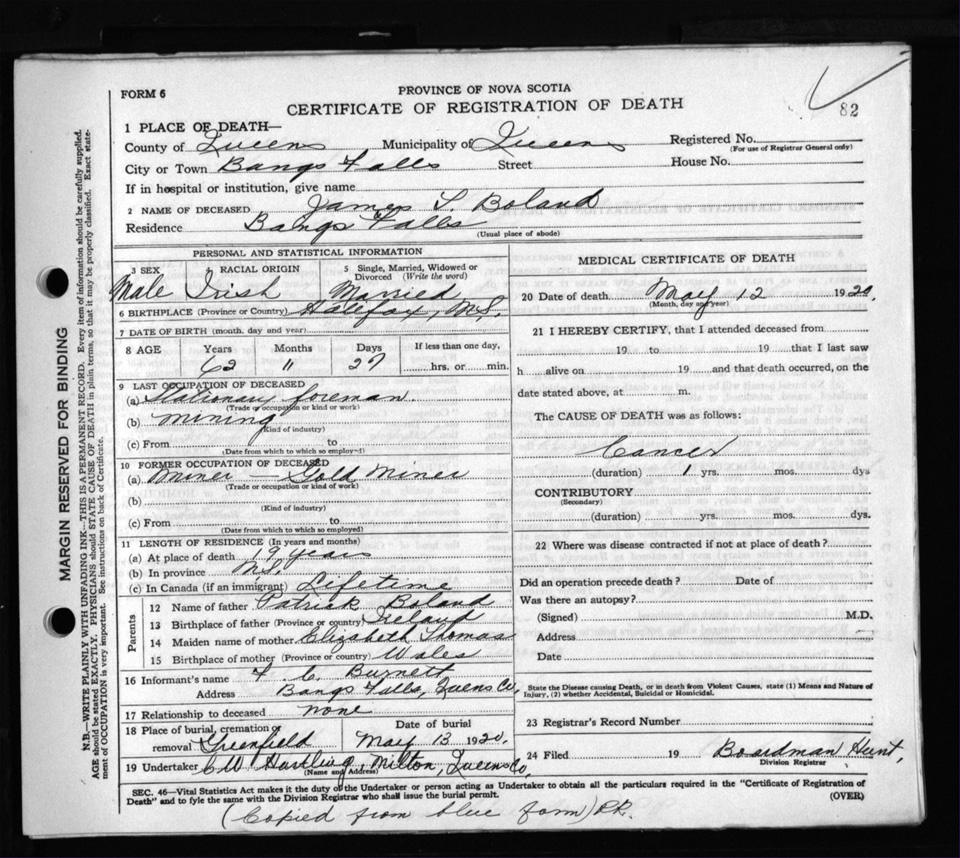 82
FORM 6
PROVINCE OF NOVA SCOTIA
CERTIFICATE OF REGISTRATION OF DEATH
1 PLACE OF DEATH—
County of Queens Municipality of Queens Registered No.
(For use of Registrar General only)
City or Town Bangs Falls Street House No.
If in hospital or institution, give name
2 NAME OF DECEASED James L. Boland
Residence Bangs Falls
(Usual place of abode)
PERSONAL AND STATISTICAL INFORMATION
3 SEX 4 RACIAL ORIGIN 5 Single, Married, Widowed or Divorced (Write the word)
Male Irish Married
6 BIRTHPLACE (Province or Country) Halifax, N.S.
7 DATE OF BIRTH (month, day and year)
8 AGE Years Months Days If less than one day,
62 11 27 hrs. or min.
9 LAST OCCUPATION OF DECEASED
(a) Stationary foreman
(Trade or occupation or kind or work)
(b) Mining
(Kind of industry)
(c) From to
(Date from which to which so employed)
10 FORMER OCCUPATION OF DECEASED
(a) Miner Gold Miner
(Trade or occupation or kind of work)
(b)
(Kind of industry)
(c) From to
(Date from which to which so employed)
11 LENGTH OF RESIDENCE (In years and months)
(a) At place of death 19 years
(b) In province N.S.
(c) In Canada (if an immigrant) Lifetime
Parents
12 Name of father Patrick Boland
13 Birthplace of father (Province or country) Ireland
14 Maiden name of mother Elizabeth Thomas
15 Birthplace of mother (Province or country) Wales
16 Informant's name F. C. Burnett
Address Bangs Falls, Queens Co,
17 Relationship to deceased none
18 Place of burial, cremation or removal Date of burial
Greenfield May 13 1920.
19 Undertaker CW Hartling, Milton, Queens Co.
(Name and Address)
MEDICAL CERTIFICATE OF DEATH
20 Date of death May 12 1920.
(Month, day and year)
21 I HEREBY CERTIFY, that I attended deceased from
19 to 19 that I last saw
h alive on 19 and that death occurred, on the
date stated above, at m.
The CAUSE OF DEATH was as follows:
Cancer
(duration) 1 yrs. mos. dys
CONTRIBUTORY
(Secondary)
(duration) yrs. mos. dys.
22 Where was disease contracted if not at place of death?
Did an operation precede death? Date of
Was there an autopsy?
(Signed) M.D.
Address
Date
State the Disease causing Death, or in death from Violent Causes, state (1) Means and Nature of
Injury, (2) whether Accidental, Suicidal or Homicidal.
23 Registrar's Record Number
24 Filed 19 Boardman Hunt,
Division Registrar
SEC. 46—Vital Statistics Act makes it the duty of the Undertaker or person acting as Undertaker to obtain all the particulars required in the "Certificate of Registration of
Death" and to fyle the same with the Division Registrar who shall issue the burial permit.
(OVER)
(Copied from blue form) P.R.
MARGIN RESERVED FOR BINDING
N.B.—WRITE PLAINLY WITH UNFADING INK—THIS IS A PERMANENT RECORD. Every item of information should be carefully supplied.
AGE should be stated EXACTLY. PHYSICIANS should STATE CAUSE OF DEATH in plain terms, so that it may be properly classified. Exact state-
ment of OCCUPATION is very important. See instructions on back of Certificate.